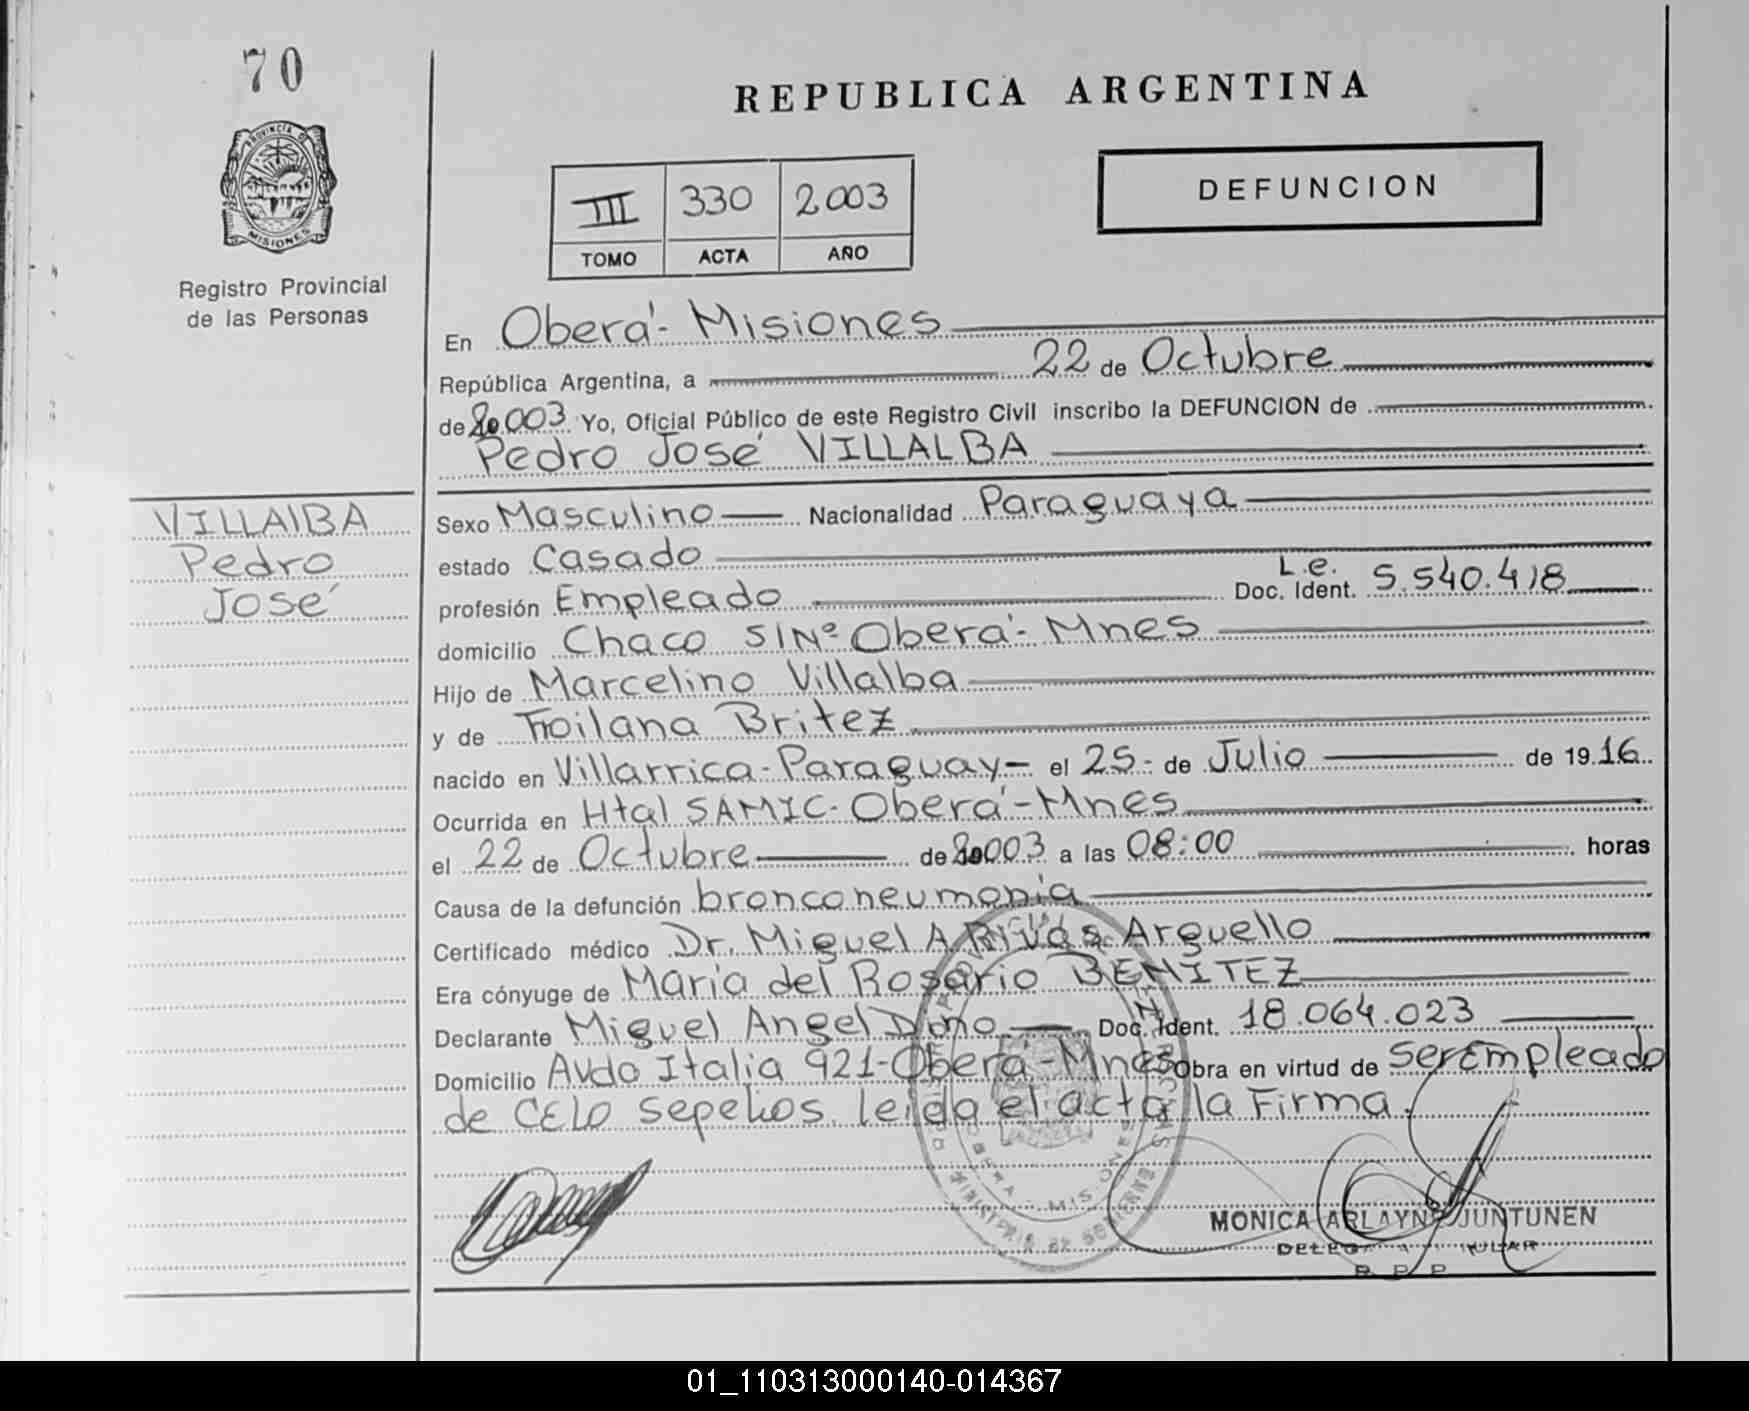 70
REPUBLICA ARGENTINA
PROVINCIA DE
MISIONES
Registro Provincial
de las Personas
III 330 2.003
TOMO ACTA AÑO
DEFUNCION
En Oberá - Misiones
República Argentina, a 22 de Octubre
de 2.003 Yo, Oficial Público de este Registro Civil inscribo la DEFUNCION de
Pedro José VILLALBA
VILLAlBA
Pedro
José
Sexo Masculino Nacionalidad Paraguaya
estado Casado
L.e.
profesión Empleado Doc. Ident. 5.540.418
domicilio Chaco S/Nº Oberá - Mnes
Hijo de Marcelino Villalba
y de Troilana Britez
nacido en Villarrica - Paraguay - el 25 - de Julio de 19 16
Ocurrida en Htal SAMIC - Oberá - Mnes
el 22 de Octubre de 2003 a las 08:00 horas
Causa de la defunción bronconeumonia
Certificado médico Dr. Miguel A Rivas Arguello
Era cónyuge de María del Rosario BENÍTEZ
Declarante Miguel Angel Doc. Ident. 18.064.023
Domicilio Avda Italia 921 - Oberá - Mnes Obra en virtud de ser Empleado
de CELO sepelios. leída el acta la Firma.
OBERA - MISIONES
MINISTERIO DE GOBIERNO
MONICA ARLAYNE JUNTUNEN
DELEGADA TITULAR
R. P. P.
01_110313000140-014367